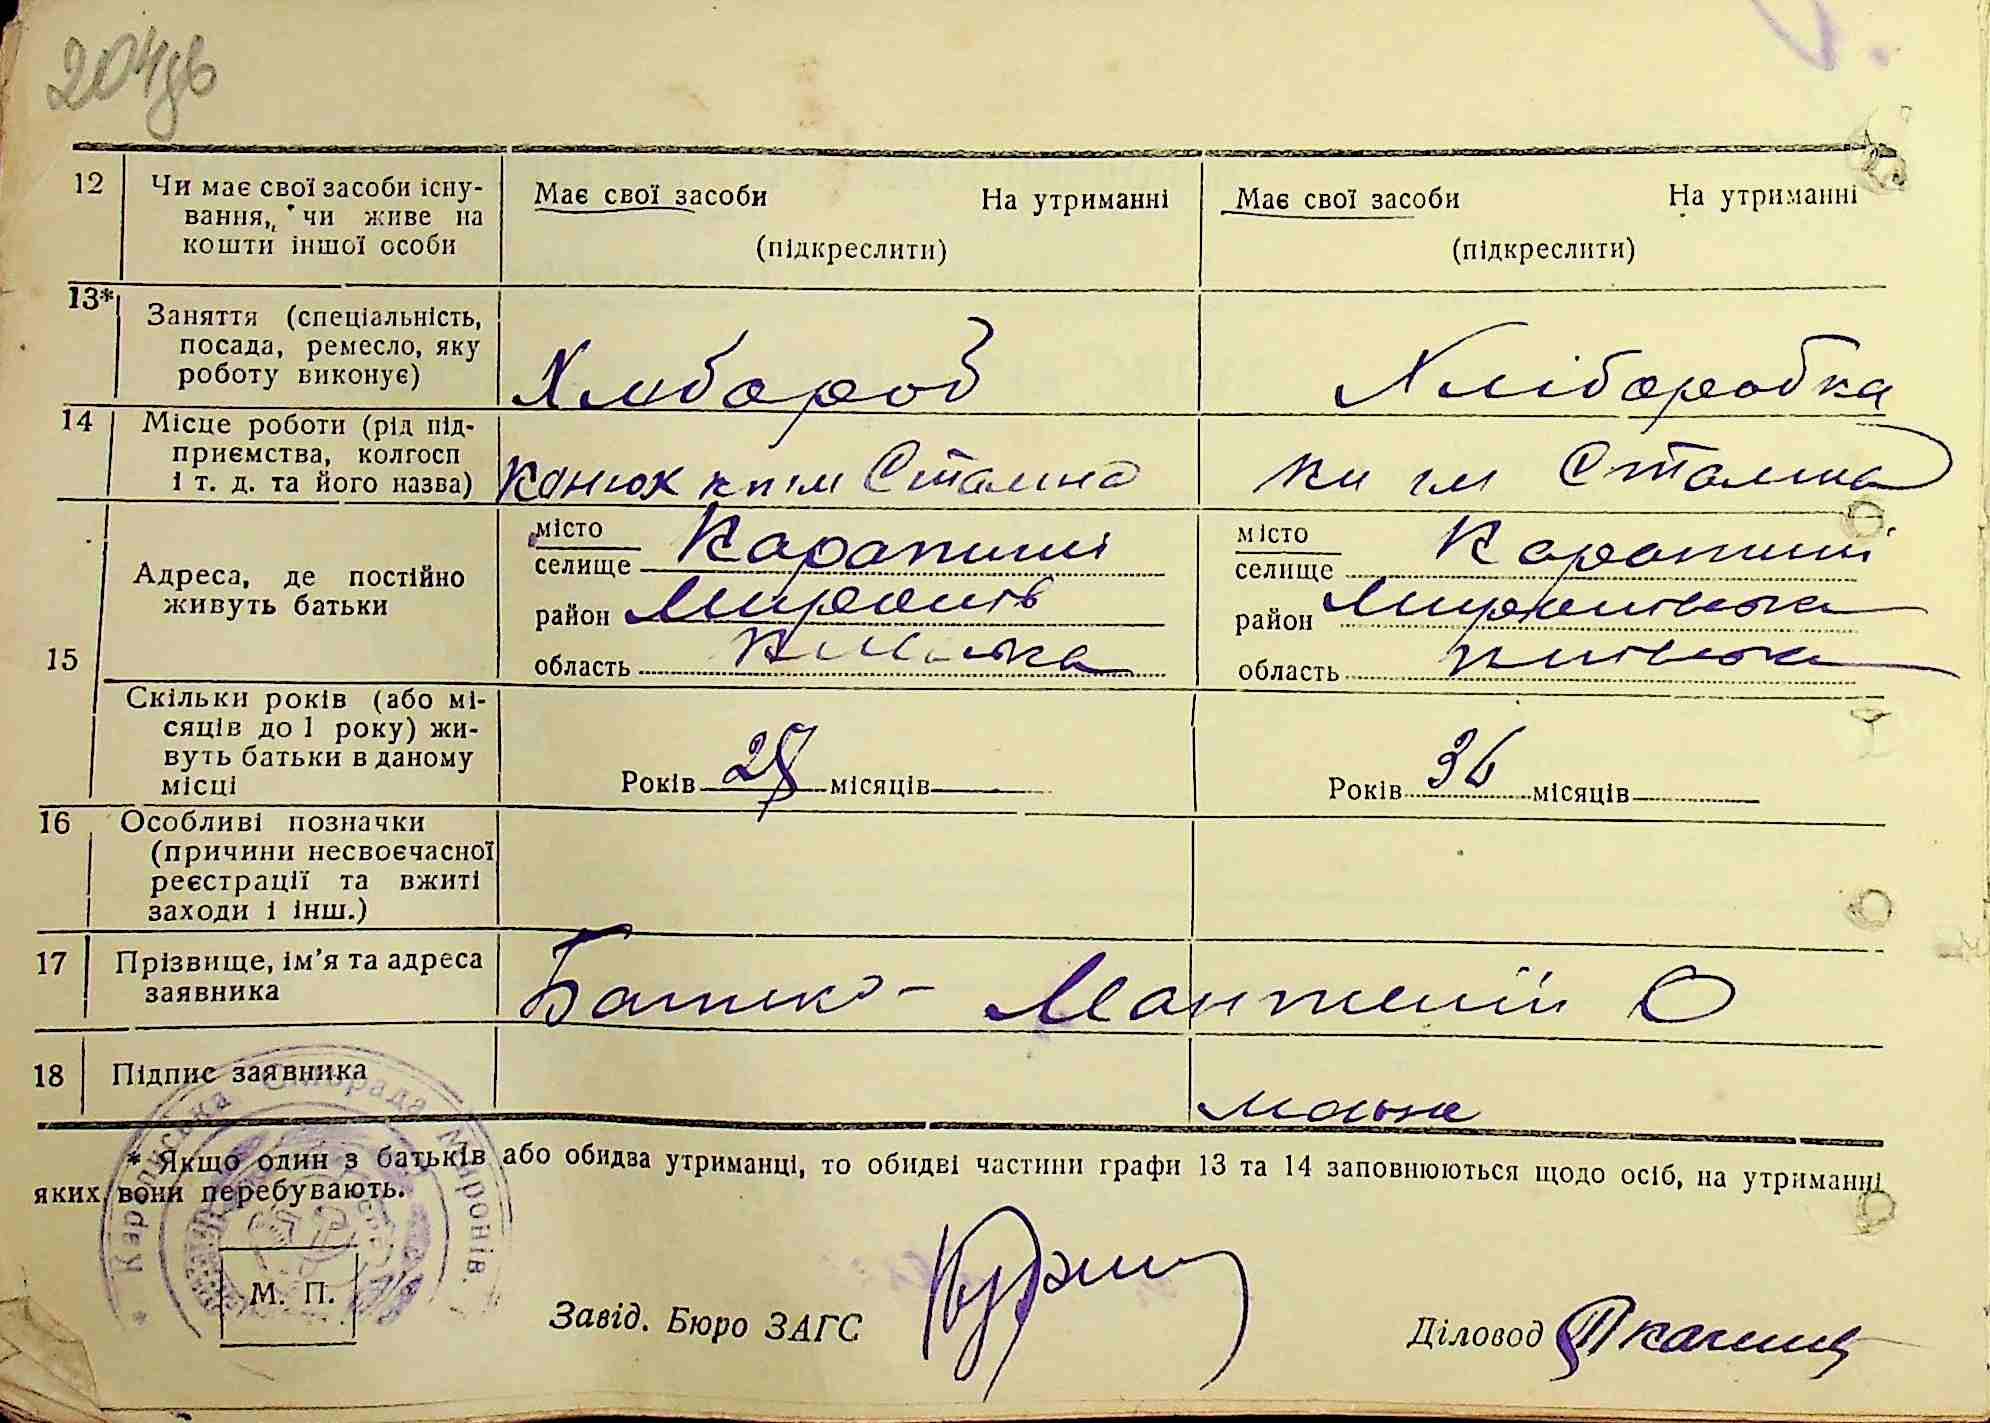 204зв
12 Чи має свої засоби існу- Має свої засоби На утриманні Має свої засоби На утриманні
вання, чи живе на
кошти іншої особи (підкреслити) (підкреслити)
13* Заняття (спеціальність,
посада, ремесло, яку
роботу виконує) Хлібороб Хліборобка
14 Місце роботи (рід під-
приємства, колгосп
і т. д. та його назва) конюх кг ім Сталіна кг ім Сталіна
15 Адреса, де постійно
живуть батьки
місто
селище Карапиші
район Миронів
область Київська
місто
селище Карапиші
район Миронівська
область Київська
Скільки років (або мі-
сяців до 1 року) жи-
вуть батьки в даному
місці Років 27 місяців Років 36 місяців
16 Особливі позначки
(причини несвоєчасної
реєстрації та вжиті
заходи і інш.)
17 Прізвище, ім’я та адреса
заявника Батько - О
18 Підпис заявника
* Якщо один з батьків або обидва утриманці, то обидві частини графи 13 та 14 заповнюються щодо осіб, на утриманні
яких вони перебувають.
Караписька Сільрада Миронів.
М. П.
Завід. Бюро ЗАГС
Діловод